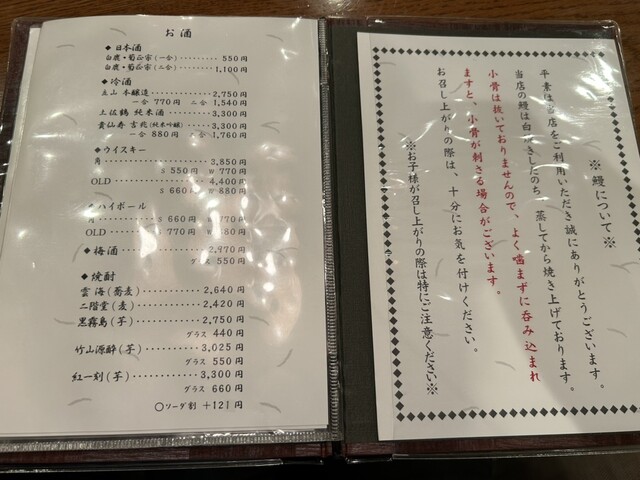 お酒
◆日本酒
白鹿・菊正宗(一合)・・・・・・・・550円
白鹿・菊正宗(二合)・・・・・・・1,100円
◆冷酒
立山 本醸造・・・・・・・・・・・2,750円
一合 770円 二合 1,540円
土佐鶴 純米酒・・・・・・・・・3,300円
貴仙寿 吉兆(純米吟醸)・・・・・・3,300円
一合 880円 二合 1,760円
◆ウイスキー
角・・・・・・・・・・・・・・・3,850円
S 550円 W 770円
OLD・・・・・・・・・・・・・・4,400円
S 660円 W 880円
ハイボール
角 ・・・・・・S 660円 W 770円
OLD・・・・・・S 770円 W 880円
◆梅酒・・・・・・・・・・・・・2,970円
グラス 550円
◆焼酎
雲海(蕎麦)・・・・・・・・・2,640円
二階堂(麦)・・・・・・・・・2,420円
黒霧島(芋)・・・・・・・・・2,750円
グラス 440円
竹山源酔(芋)・・・・・・・・3,025円
グラス 550円
紅一刻(芋)・・・・・・・・・3,300円
グラス 660円
〇ソーダ割 +121円
※鰻について※
平素は当店をご利用いただき誠にありがとうございます。
当店の鰻は白焼きしたのち、蒸してから焼き上げております。
小骨は抜いておりませんので、よく噛まずに呑み込まれ
ますと、小骨が刺さる場合がございます。
お召し上がりの際は、十分にお気を付けください。
※お子様が召し上がりの際は特にご注意ください※